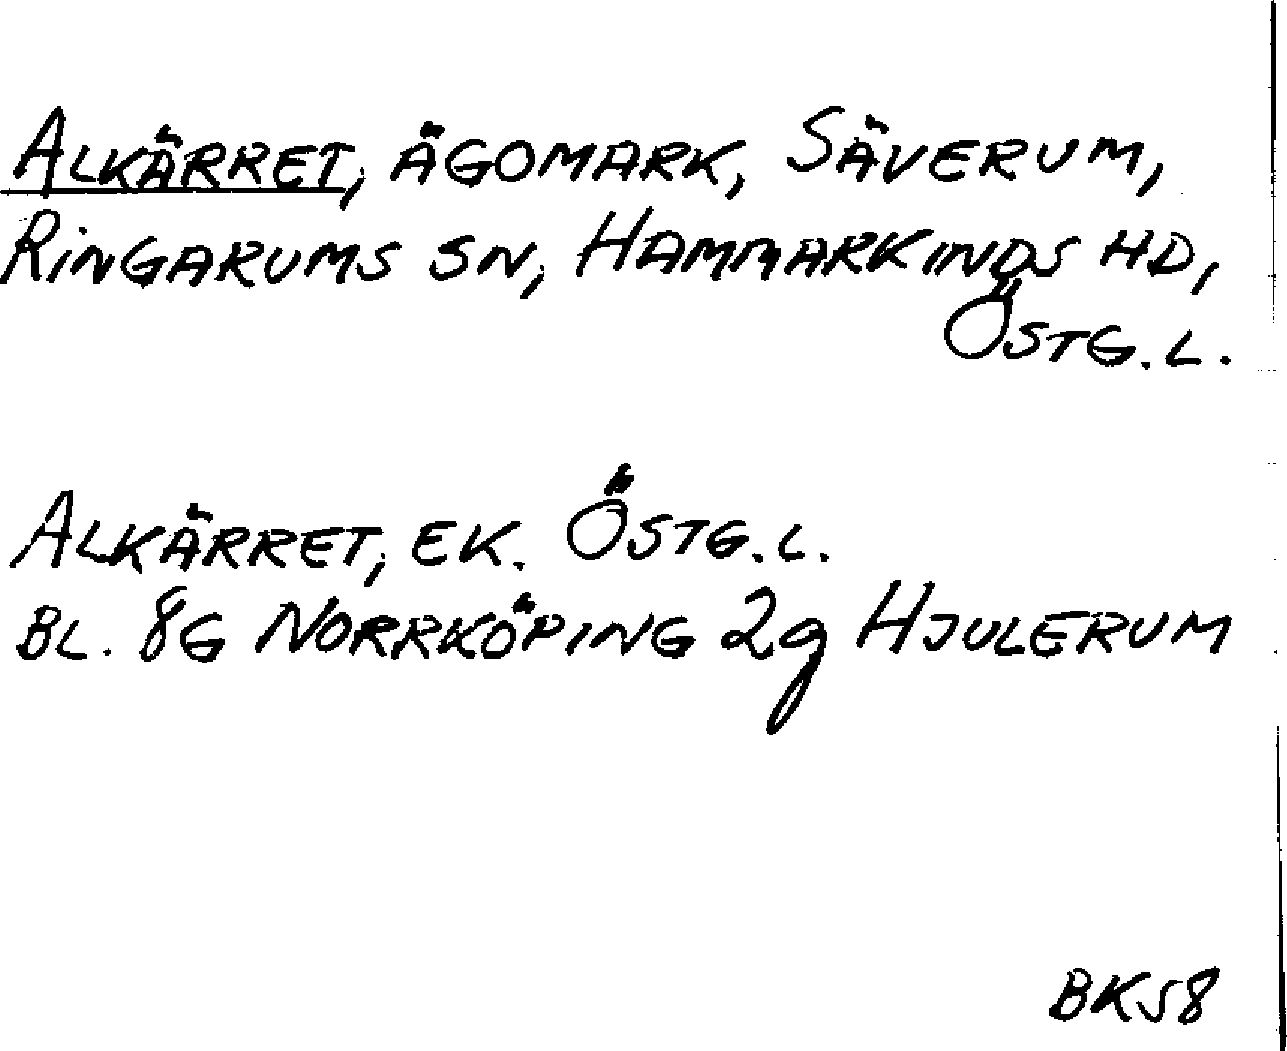 ALKÄRRET, ÄGOMARK, SÄVERUM,
RINGARUMS SN, HAMMARKINDS HD,
ÖSTG.L.
ALKÄRRET, EK. ÖSTG.L.
BL. 8G NORRKÖPING 2g HJULERUM
BK58